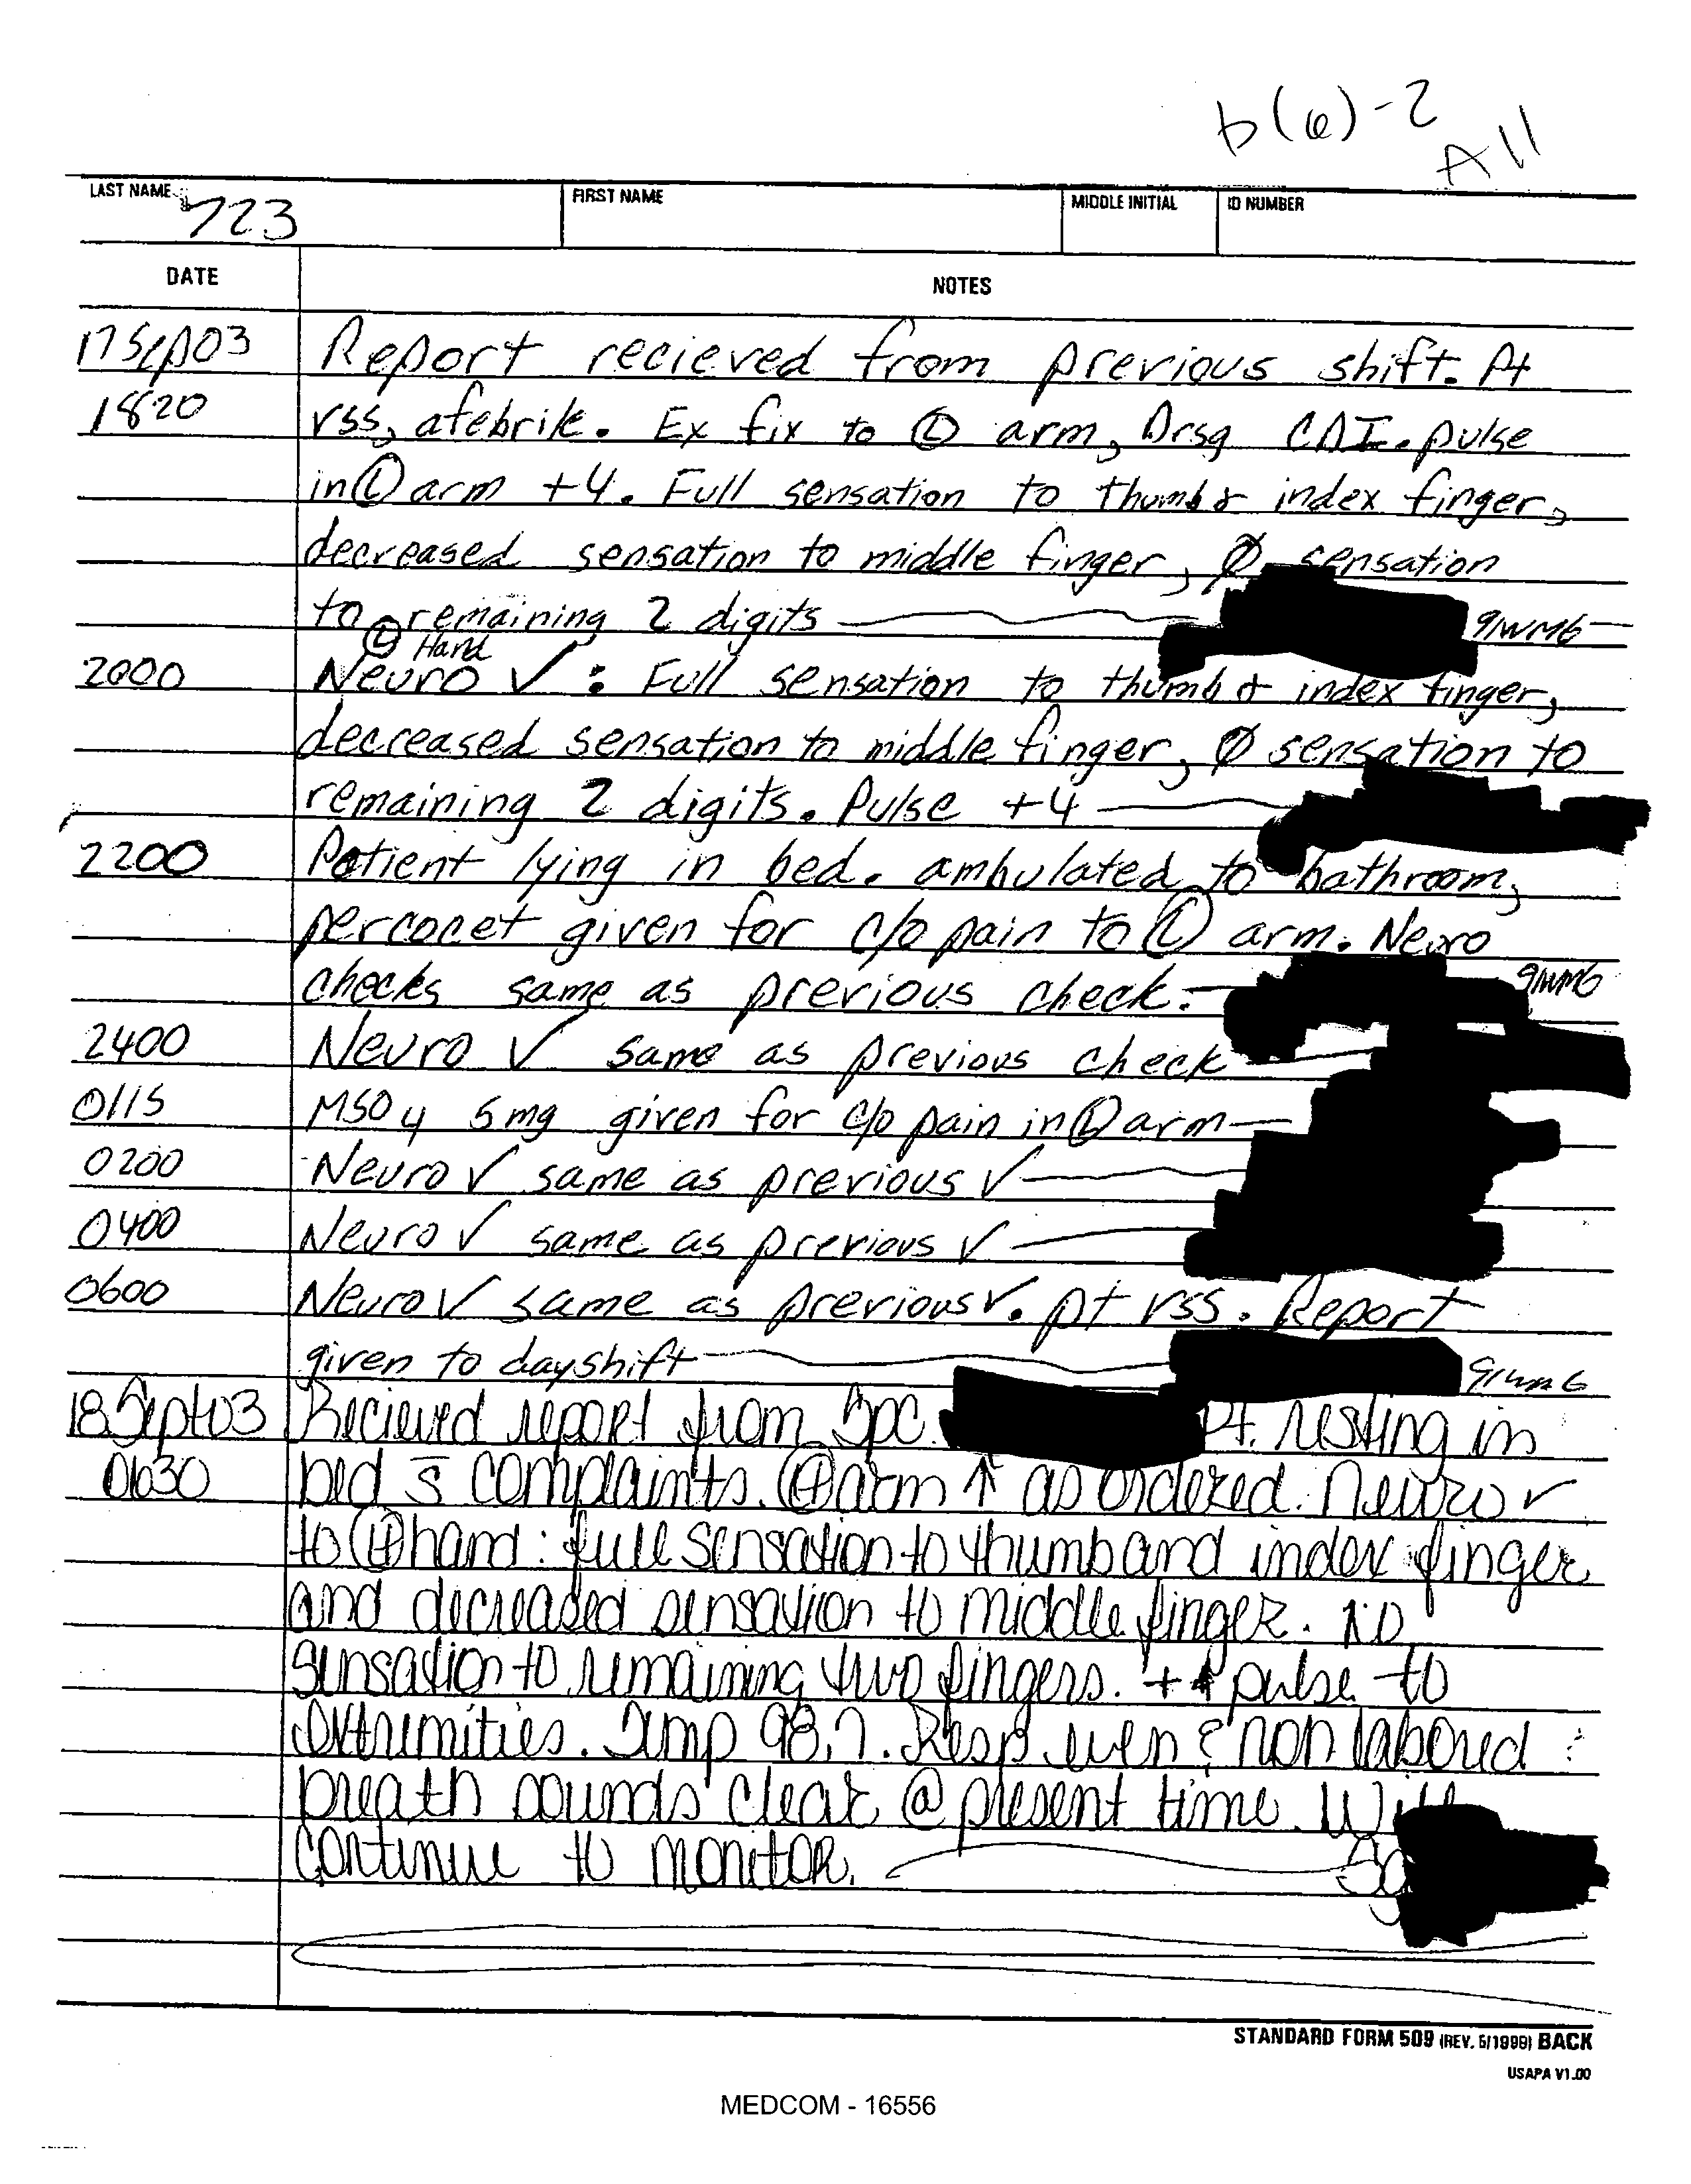 b(6)-2
All
LAST NAME 723 FIRST NAME MIDDLE INITIAL ID NUMBER
DATE NOTES
17Sep03 Report recieved from previous shift. Pt
1820 vss, afebrile. Ex fix to Ⓛ arm, Drsg CDI. pulse
in Ⓛ arm +4. Full sensation to thumb & index finger,
decreased sensation to middle finger, Ø sensation
to remaining 2 digits 91WM6
Ⓛ Hand
2000 Neuro ✓: Full sensation to thumb & index finger,
decreased sensation to middle finger, Ø sensation to
remaining 2 digits. Pulse +4
2200 Patient lying in bed. ambulated to bathroom,
percocet given for c/o pain to Ⓛ arm. Neuro
checks same as previous check. 91WM6
2400 Neuro ✓ same as previous check
0115 MSO4 5mg given for c/o pain in Ⓛ arm
0200 Neuro ✓ same as previous ✓
0400 Neuro ✓ same as previous ✓
0600 Neuro ✓ same as previous ✓. pt vss. Report
given to dayshift 91WM6
18Sept03 Recieved report from Spc. Pt. resting in
0630 bed s̄ complaints. Ⓛ arm ↑ as ordered. Neuro ✓
to Ⓛ hand: full sensation to thumb and index finger
and decreased sensation to middle finger. no
sensation to remaining two fingers. + pulse to
extremities. Temp 98.7. Resp even & non labored
breath sounds clear @ present time. Will
continue to monitor.
STANDARD FORM 509 (REV. 5/1999) BACK
USAPA V1.00
MEDCOM - 16556